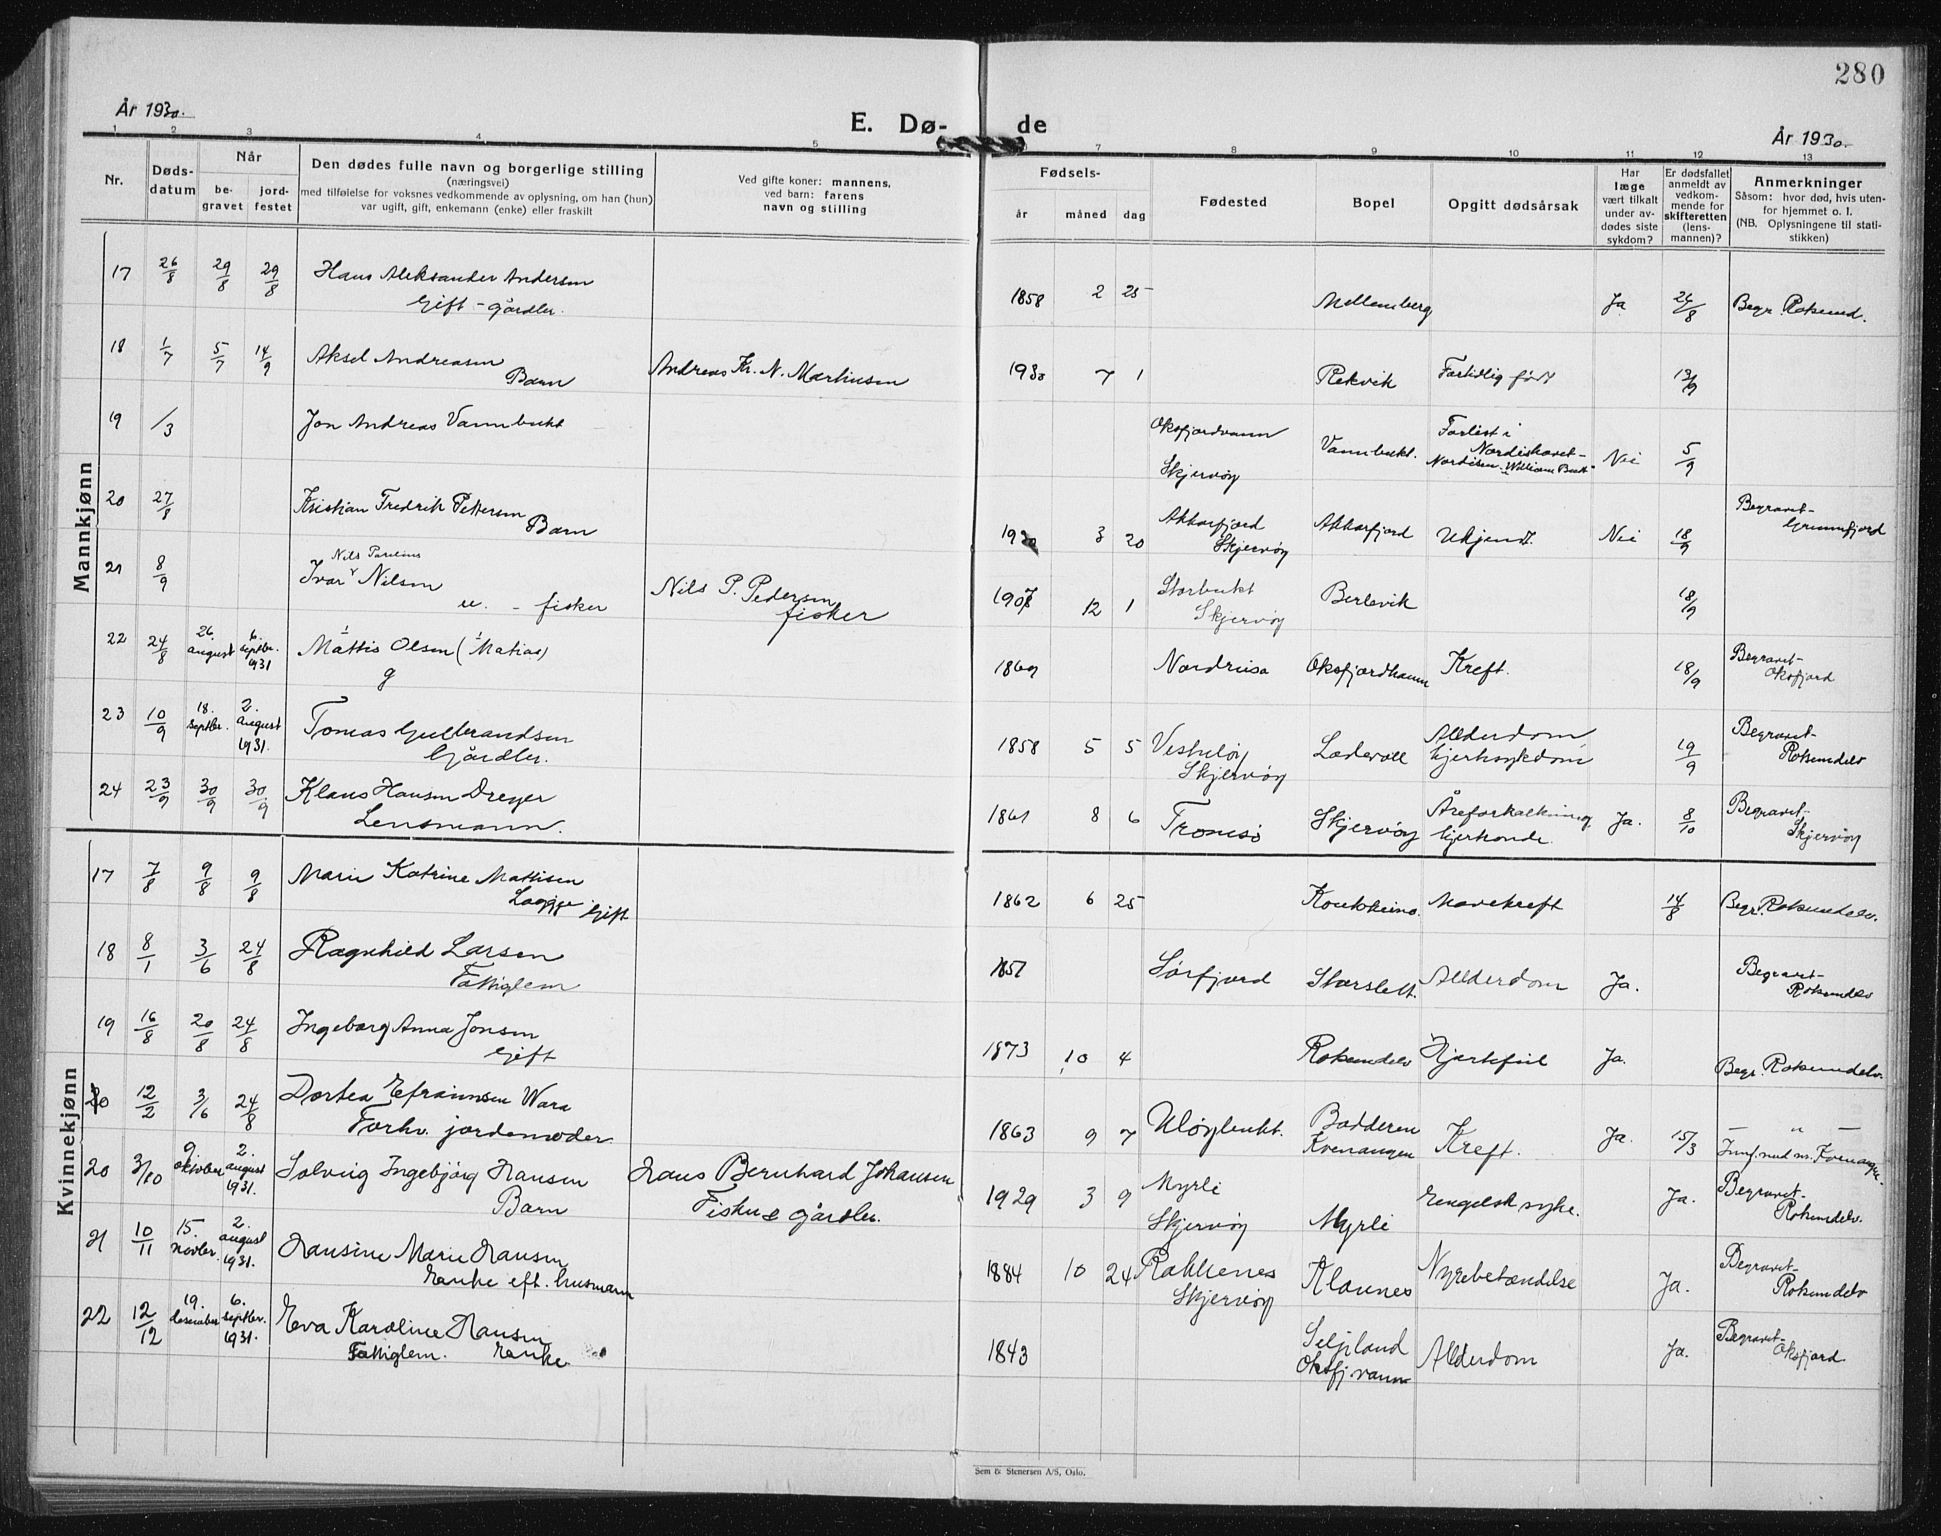 280
År 1930.
E. Dø-
de
År 1930.
1 2 3 4 5 7 8 9 10 11 12 13
Nr.
Døds-
datum
Når
be-
gravet
jord-
festet
Den dødes fulle navn og borgerlige stilling
(næringsvei)
med tilføielse for voksnes vedkommende av oplysning, om han (hun)
var ugift, gift, enkemann (enke) eller fraskilt
Ved gifte koner: mannens,
ved barn: farens
navn og stilling
Fødsels-
år måned dag
Fødested
Bopel
Opgitt dødsårsak
Har
læge
vært tilkalt
under av-
dødes siste
sykdom?
Er dødsfallet
anmeldt av
vedkom-
mende for
skifteretten
(lens-
mannen)?
Anmerkninger
Såsom: hvor død, hvis uten-
for hjemmet o. l.
(NB. Oplysningene til stati-
stikken)
Mannkjønn
17 26/8 29/8 29/8 Hans Aleksander Andersen
Gift - gårdbr.
1858 2 25 Mellemberg Ja 26/8 Begr. Roksund.
18 1/7 5/7 14/9 Aksel Andreassen
Barn
Andreas Kr. N. Martinsen
1930 7 1 Rekvik Fortidlig født 13/9
19 /3 Jon Andreas Vannbukt
Oksfjordvann
Skjervøy
Vannbukt. Forlist i
Nordishavet-
Nei 5/9
20 27/8 Kristian Fredrik Pettersen
Barn
1930 3 20 Akkarfjord
Skjervøy
Akkarfjord Ukjendt. Nei 18/9 Begravet-
Grunnfjord
21 8/9 Nils Parelius
Ivar Nilsen
u. - fisker
Nils P. Pedersen
fisker
1907 12 1 Storbukt
Skjervøy
Berlevik 18/9
22 24/8 26. august 6. septbr. 1931 Mattis Olsen (Matias)
g
1869 Nordreisa Oksfjordhamn Kreft. 18/9 Begravet-
Oksfjord
23 10/9 18. septbr. 2. august 1931. Tomas Gulbrandsen
Gårdbr.
1858 5 5
Skjervøy
Alderdom,
hjertesykdom
19/9 Begravet-
Roksundelv
24 23/9 30/9 30/9 Klaus Hansen Dreyer
Lensmann.
1861 8 6 Tromsø Skjervøy Åreforkalkning,
hjerteonde.
Ja. 8/10 Begravet-
Skjervøy
Kvinnekjønn
17 7/8 9/8 9/8 Marie Katrine Mattisen
Gift
1862 6 25 Koutokeino. Mavekreft 14/8 Begr. Roksundelv.
18 8/1 3/6 24/8 Ragnhild Larsen
Fattiglem
1857 Sørfjord Storslett. Alderdom Ja. Begravet-
Roksundelv
19 16/8 20/8 24/8 Ingeborg Anna Jonsen
Gift
1873 10 4 Roksundelv Hjertefeil Ja. Begr. Roksundelv.
20 12/2 3/6 24/8 Dortea Efraimsen Wara
Forhv. jordemoder.
1863 9 7 Uløybukt. Badderen
Kvenangen
Kreft. Ja. 15/3 — „ —
20 3/10 9. oktober 2. august 1931. Solveig Ingebjørg Hansen
Barn
Hans Bernhard Johansen
Fisker & gårdbr.
1929 3 9 Myrli
Skjervøy
Myrli Engelsk syke. Ja. Begravet-
Roksundelv.
21 10/11 15. novbr. 2. august 1931. Hansine Marie Hansen
Enke eft. husmann
1884 10 24 Rakkenes
Skjervøy
Klaunes Nyrebetændelse Ja. Begravet-
Roksundelv
22 12/12 19. desember 6. septbr. 1931. Eva Karoline Hansen
Fattiglem. Enke.
1843 Seljland
Oksfj.vann
Alderdom Ja. Begravet-
Oksfjord
Sem & Stenersen A/S, Oslo.